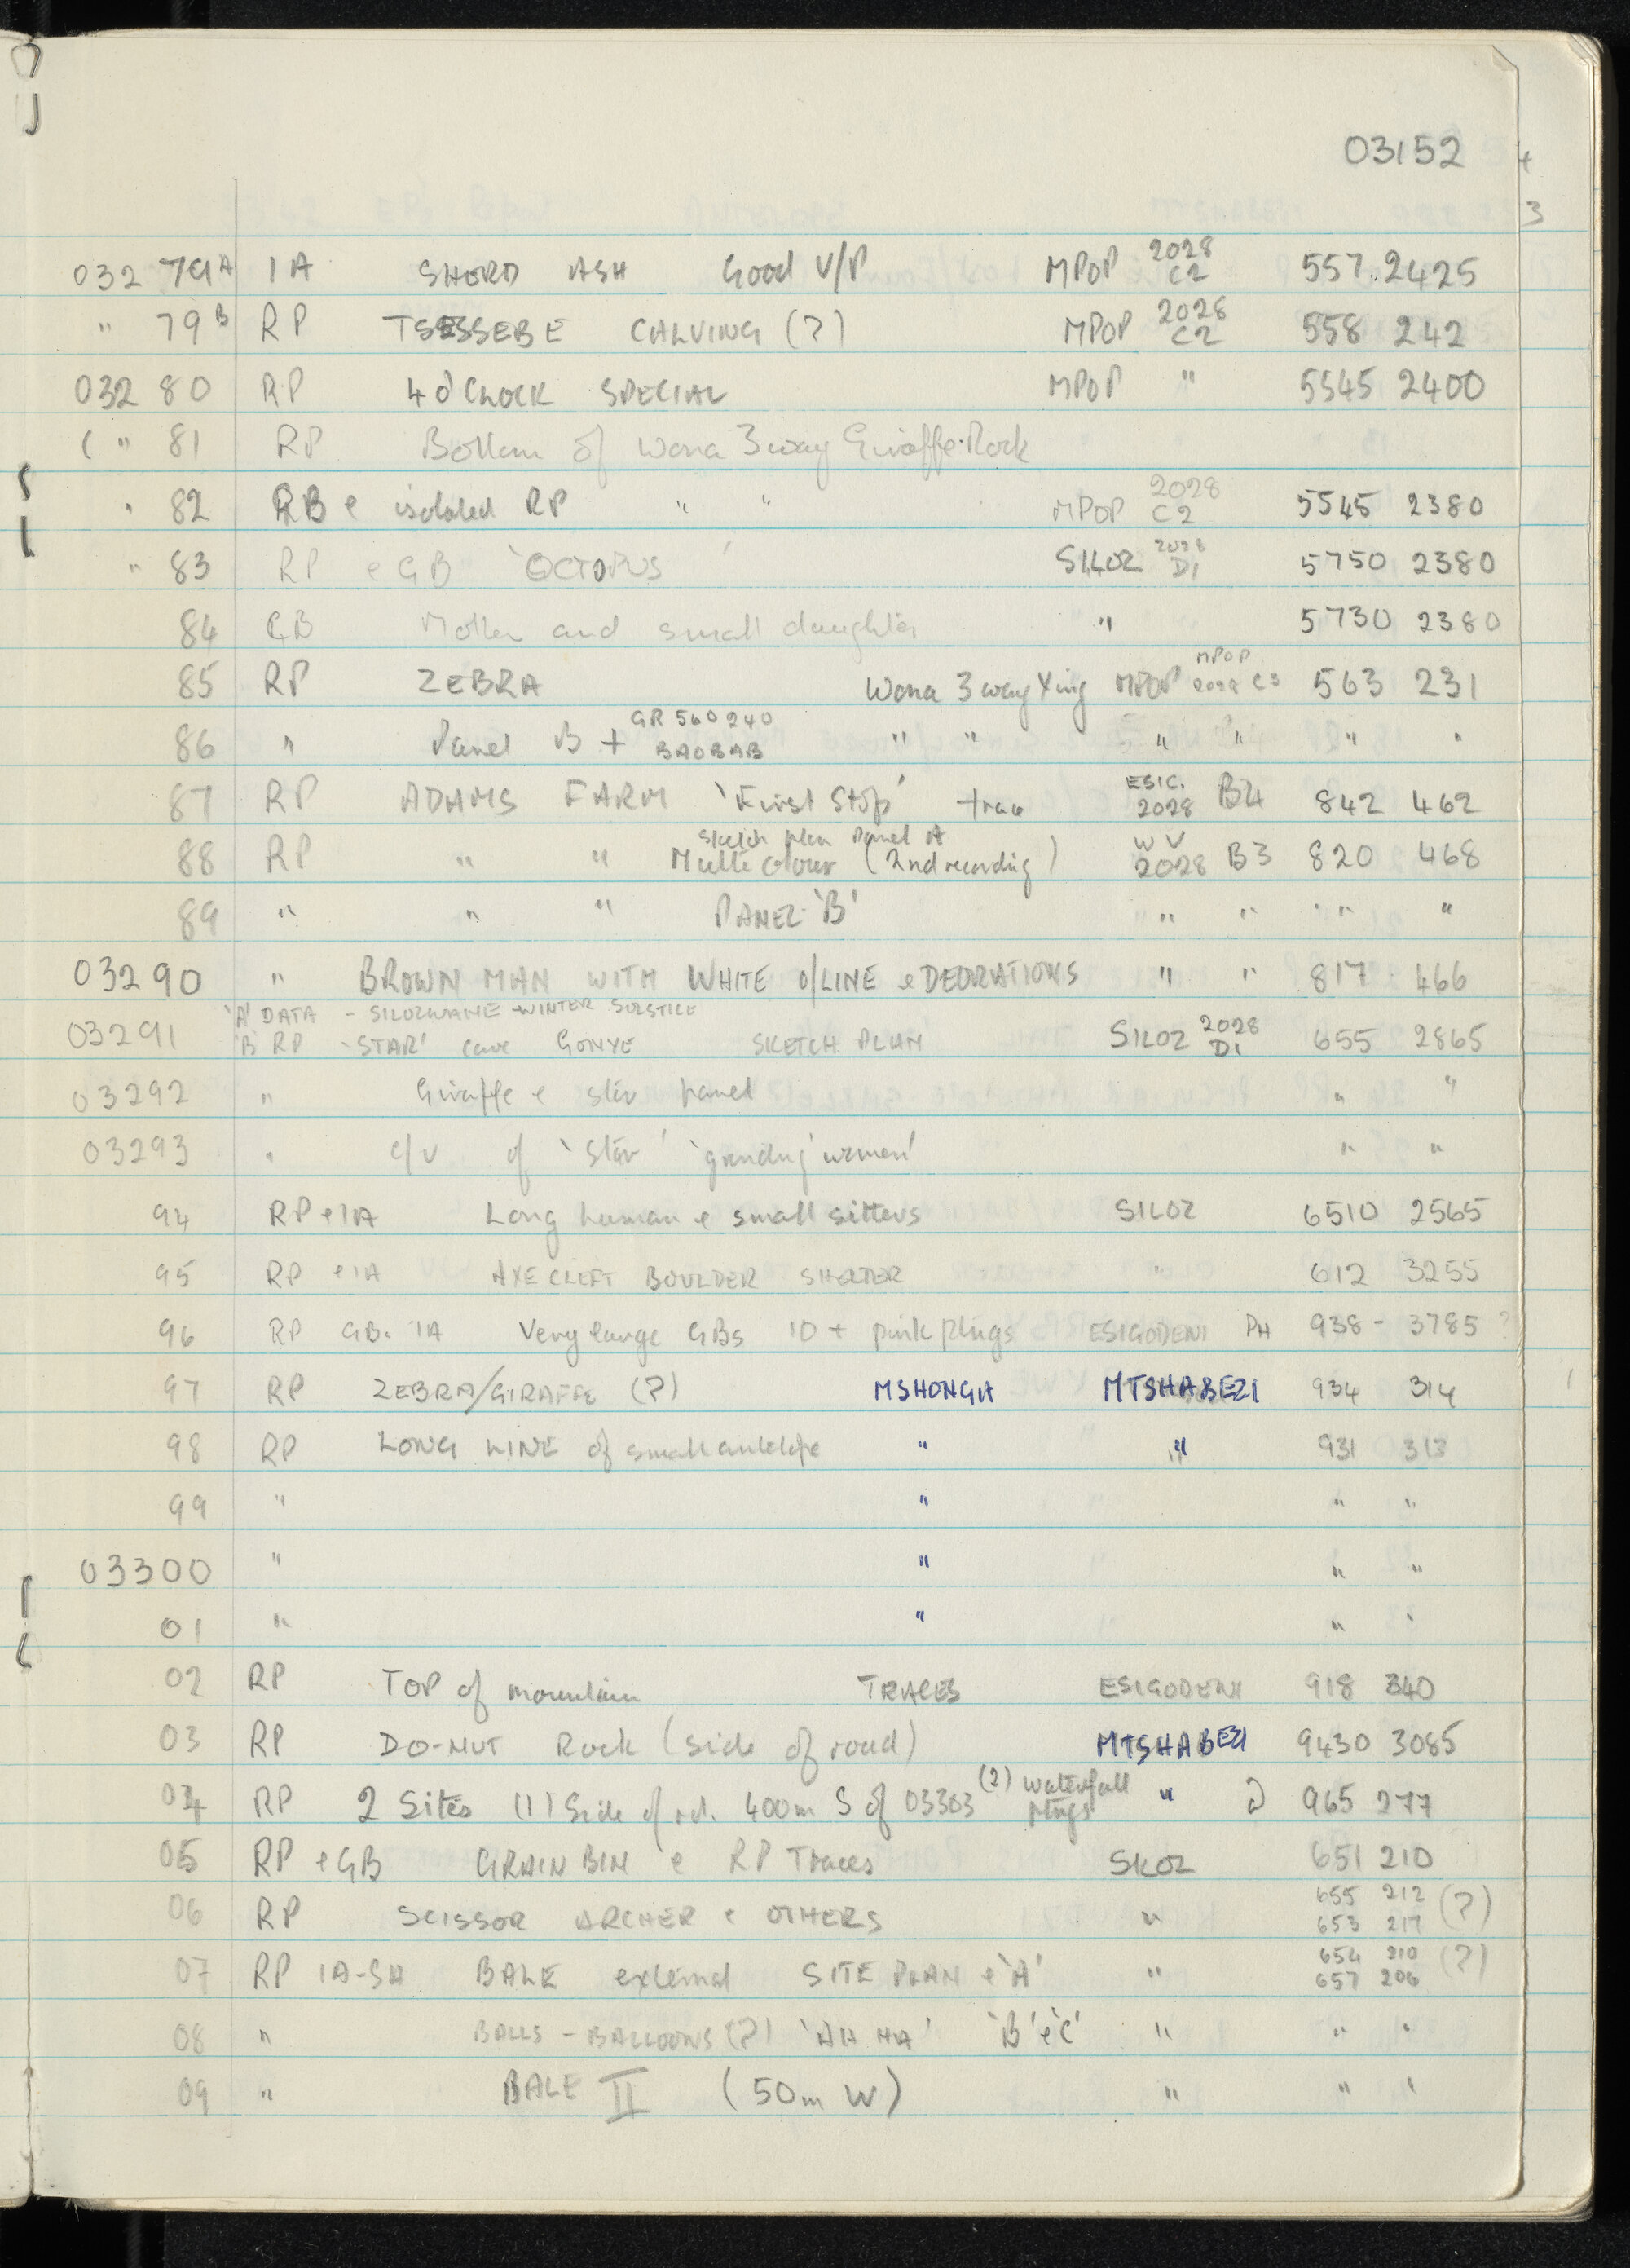 03152
032 79A 1A SHERD ASH Good V/P MPOP 2028 C2 557 2425
" 79B RP TSESSEBE CALVING (?) MPOP 2028 C2 558 242
032 80 RP 4 O'CLOCK SPECIAL MPOP " 5545 2400
( " 81 RP Bottom of Wona 3 way Giraffe Rock
" 82 RB e isolated RP " " MPOP 2028 C2 5545 2380
" 83 RP e GB 'OCTOPUS' SILOZ 2028 D1 5750 2380
84 GB Mother and small daughter " 5730 2380
85 RP ZEBRA Wona 3 way Xing MPOP MPOP 2028 C3 563 231
86 " Panel B + GR 560 240 BAOBAB " " " " " "
87 RP ADAMS FARM 'First Stop' ESIG. 2028 B4 842 462
88 RP " " Sketch plan Panel A Multi colour (2nd recording) W V 2028 B3 820 468
89 " " " PANEL 'B' " " " "
03290 " BROWN MAN WITH WHITE o/LINE e DEORATIONS " " 817 466
'A' DATA - SILOZWANE WINTER SOLSTICE
03291 'B' RP 'STAR' cave GONYE SKETCH PLAN SILOZ 2028 D1 655 2865
03292 " Giraffe e star panel " "
03293 " c/v of 'Star' 'grinding women' " "
94 RP e IA Long human e small sitters SILOZ 6510 2565
95 RP e IA AXE CLEFT BOULDER SHELTER " 612 3255
96 RP GB. IA Very large GBs 10 + pink plugs ESIGODENI PH 938 - 3785 ?
97 RP ZEBRA/GIRAFFE (?) MSHONGA MTSHABEZI 934 314
98 RP LONG LINE of small antelope " " 931 313
99 " " " "
03300 " " " "
01 " " " "
02 RP TOP of mountain TRACES ESIGODENI 918 340
03 RP DO-NUT Rock (side of road) MTSHABEZI 9430 3085
04 RP 2 Sites (1) Side of rd. 400m S of 03303 (2) Waterfall plugs " 965 277
05 RP e GB GRAIN BIN e RP Traces SILOZ 651 210
06 RP SCISSOR ARCHER e OTHERS " 655 212 653 217 (?)
07 RP IA-SH BALE external SITE PLAN e 'A' " 654 210 657 206 (?)
08 " BALLS - BALLOONS (?) 'AH HA' 'B' e 'C' " " "
09 " BALE II (50m W) " " "